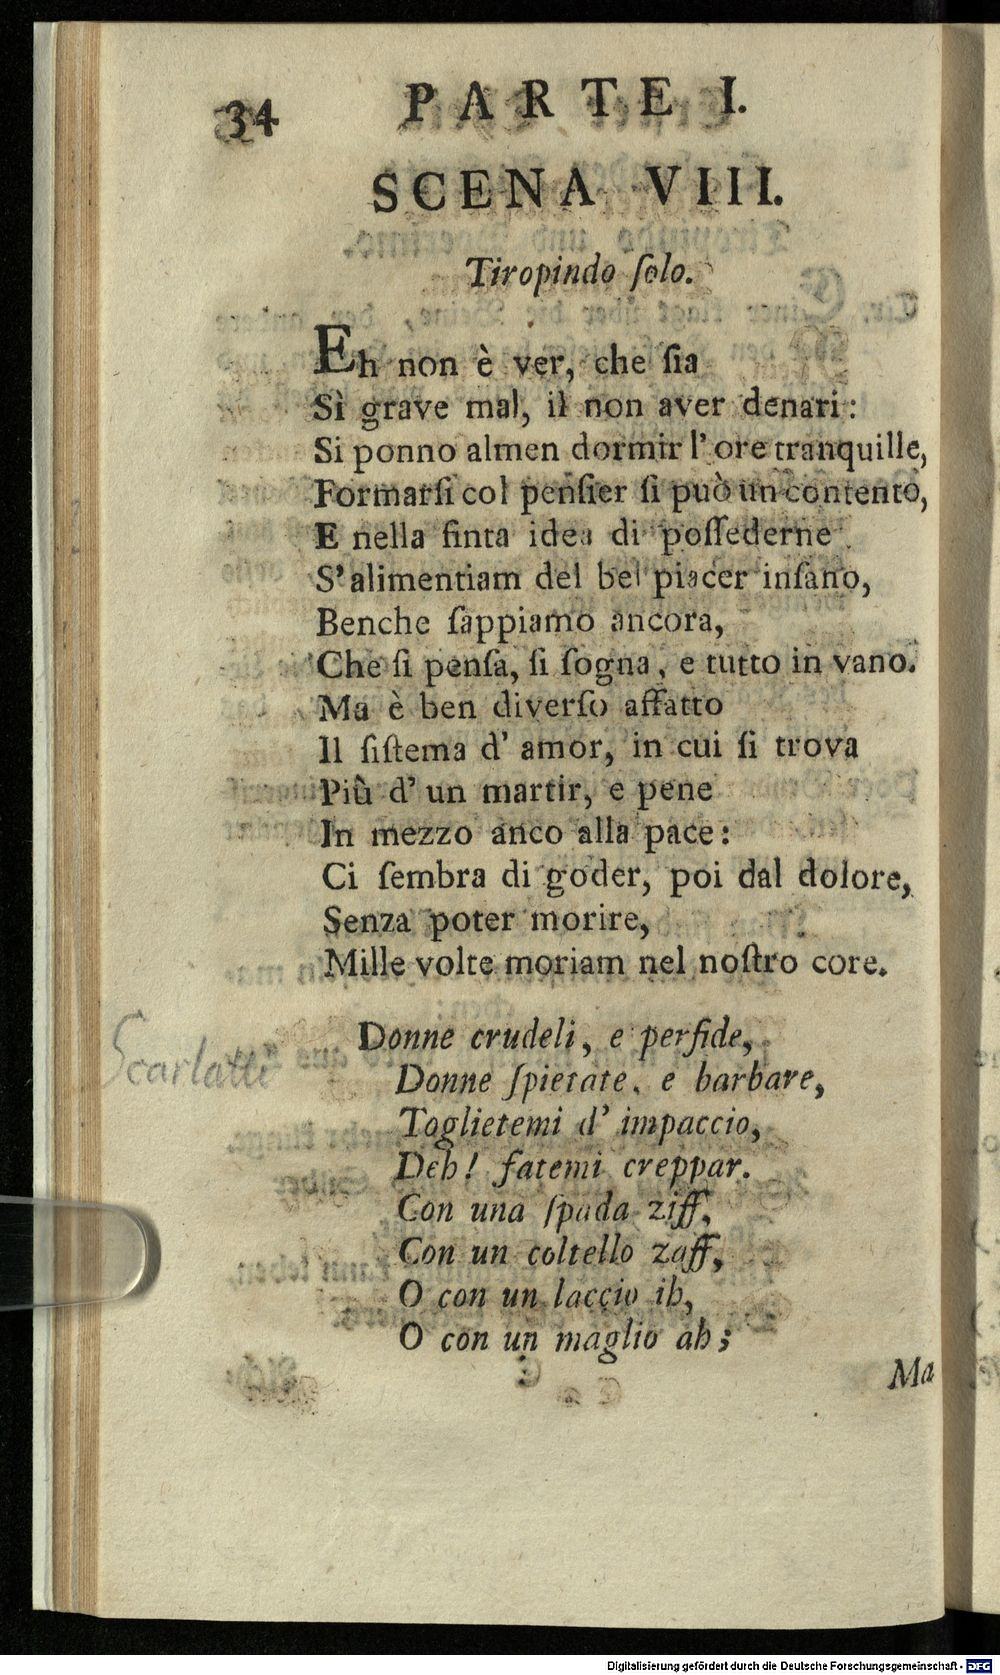 34
PARTE I.
SCENA VIII.
Tiropindo ſolo.
Eh non è ver, che ſia
Sì grave mal, il non aver denari:
Si ponno almen dormir l' ore tranquille,
Formarſi col penſier ſi può un contento,
E nella finta idea di poſſederne
S'alimentiam del bel piacer inſano,
Benche ſappiamo ancora,
Che ſi penſa, ſi ſogna, e tutto in vano.
Ma è ben diverſo affatto
Il ſiſtema d' amor, in cui ſi trova
Più d' un martir, e pene
In mezzo anco alla pace:
Ci ſembra di goder, poi dal dolore,
Senza poter morire,
Mille volte moriam nel noſtro core.
Scarlatti
Donne crudeli, e perfide,
Donne ſpietate, e barbare,
Toglietemi d' impaccio,
Deh! fatemi creppar.
Con una ſpada ziff,
Con un coltello zaff,
O con un laccio ih,
O con un maglio ah;
Ma
Digitalisierung gefördert durch die Deutsche Forschungsgemeinschaft - DFG